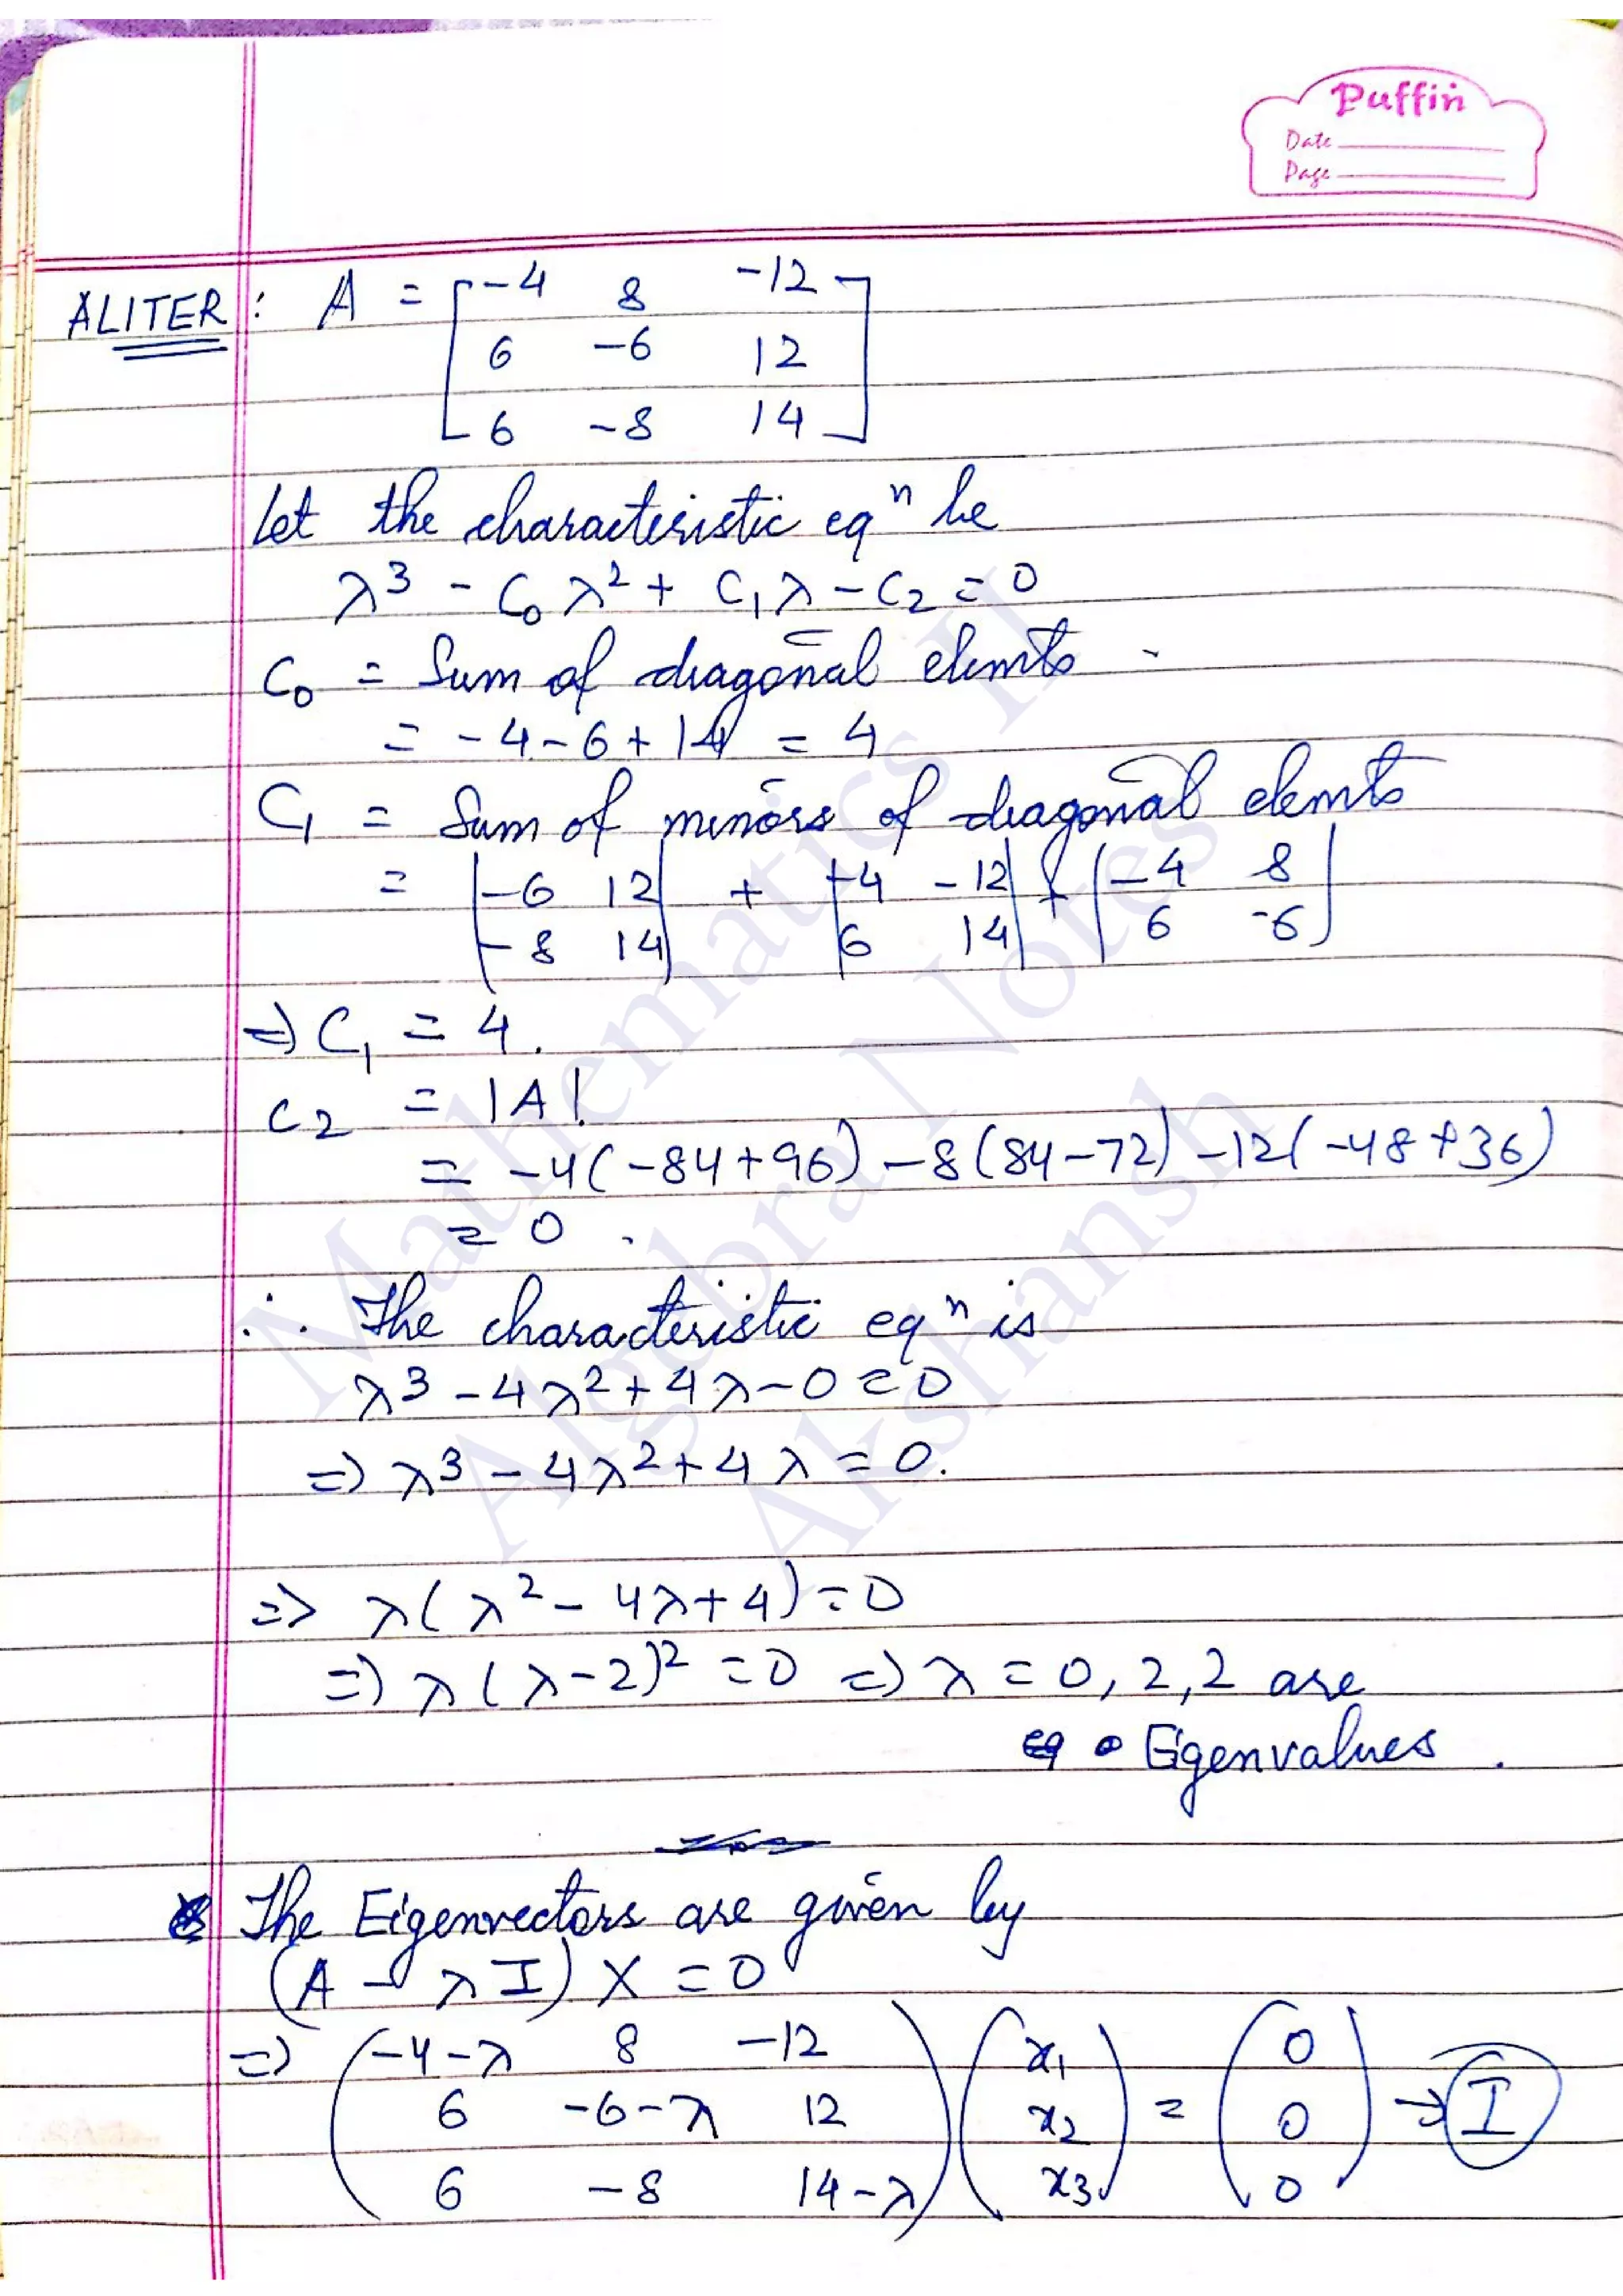 Puffin
Date
Page
ALITER : A = [ -4 8 -12
6 -6 12
6 -8 14 ]
Let the characteristic eqⁿ be
λ³ - C₀λ² + C₁λ - C₂ = 0
C₀ = Sum of diagonal elemts .
= -4 - 6 + 14 = 4
C₁ = Sum of minors of diagonal elemts
= | -6 12 | + | -4 -12 | + | -4 8 |
| -8 14 | | 6 14 | | 6 -6 |
⇒ C₁ = 4.
C₂ = |A|
= -4(-84+96) -8(84-72) -12(-48+36)
= 0 .
∴ The characteristic eqⁿ is
λ³ - 4λ² + 4λ - 0 = 0
⇒ λ³ - 4λ² + 4λ = 0.
⇒ λ(λ² - 4λ + 4) = 0
⇒ λ(λ-2)² = 0 ⇒ λ = 0, 2, 2 are
Eigenvalues .
The Eigenvectors are given by
(A - λI) X = 0
⇒ ( -4-λ 8 -12 ) ( x₁ ) = ( 0 ) → I
( 6 -6-λ 12 ) ( x₂ ) ( 0 )
( 6 -8 14-λ ) ( x₃ ) ( 0 )
Mathematics II
Algebra Notes
Akshansh